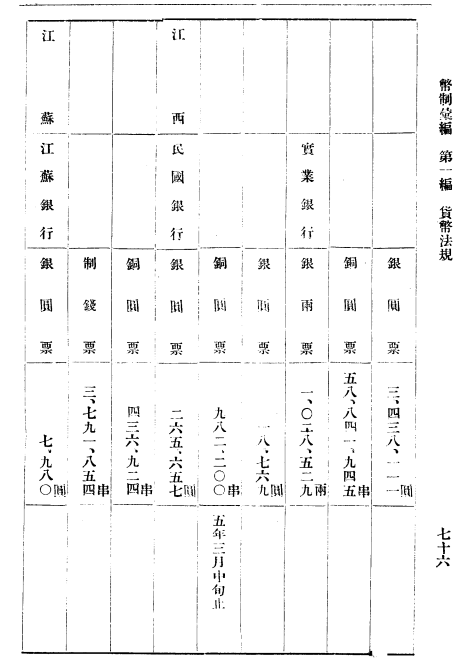 幣制彙編 第一編 貨幣法規
七十六
銀圓票 三、四三八、一一一圓
銅圓票 五八、八四一、九四五串
實業銀行 銀兩票 一、〇三八、五二九兩
銀圓票 一八、七六九圓
銅圓票 九八二、二〇〇串 五年三月中旬止
江西 民國銀行 銀圓票 二六五、六五七圓
銅圓票 四三六、九二四串
制錢票 三、七九一、八五四串
江蘇 江蘇銀行 銀圓票 七、九八〇圓